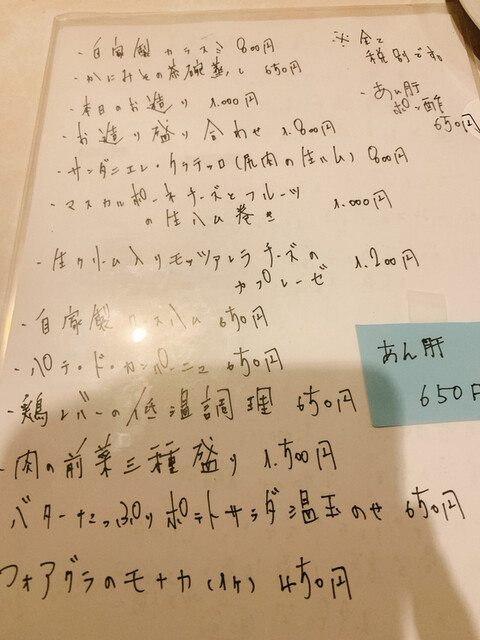 ・自家製カラスミ 800円
・かにみその茶碗蒸し 650円
・本日のお造り 1.000円
・お造り盛り合わせ 1.800円
・サンダニエレ・クラテッロ(尻肉の生ハム) 800円
・マスカルポーネチーズとフルーツ
の生ハム巻き 1.000円
・生クリーム入りモッツァレラチーズの
カプレーゼ 1.200円
・自家製ロースハム 650円
・パテ・ド・カンパーニュ 650円
・鶏レバーの低温調理 650円
・肉の前菜三種盛り 1.500円
バターたっぷりポテトサラダ温玉のせ 650円
フォアグラのモナカ(1ヶ) 450円
※全て
税別です。
・あん肝
ポン酢
650円
あん肝
650円